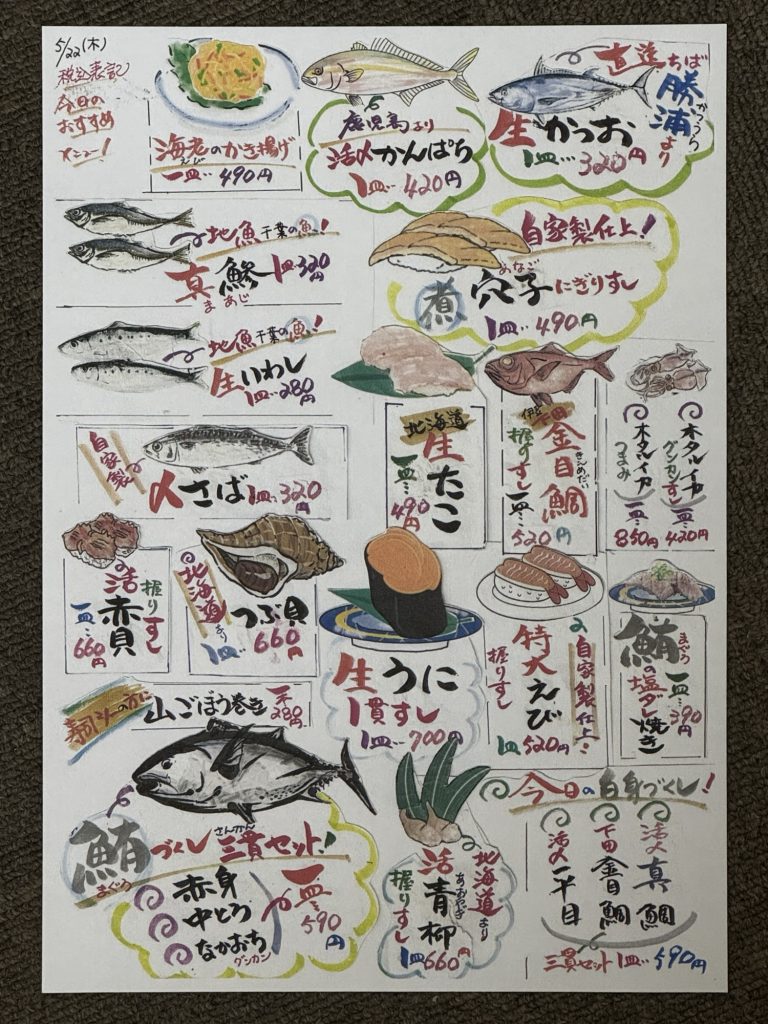 5/22(木)
税込表記
今日の
おすすめ
メニュー!
海老のかき揚げ
えび
一皿…490円
鹿児島より
活〆かんぱち
1皿…420円
直送ちば
勝浦より
かつうら
生かつお
1皿…320円
地魚千葉の魚!
真鯵 1皿…320円
まあじ
自家製仕上!
煮穴子にぎりすし
あなご
1皿…490円
地魚千葉の魚!
生いわし
1皿…280円
自家製
〆さば1皿…320円
北海道
生たこ
一皿…490円
伊豆下田
金目鯛
きんめだい
握りすし一皿…520円
ホタルイカ
グンカンすし
一皿…420円
ホタルイカ
つまみ
一皿…850円
握りすし
活赤貝
一皿…660円
北海道より
つぶ貝
1皿…660円
生うに
1貫すし
1皿…700円
自家製仕上!
特大えび
握りすし
1皿520円
鮪の塩ダレ焼き
まぐろ
一皿…390円
寿司シーの方に
山ごぼう巻き
一本280円
鮪づくし三貫セット!
まぐろ
さんかん
赤身
中とろ
なかおち
グンカン
一皿…590円
北海道より
活青柳
あおやぎ
握りすし
1皿660円
今日の白身づくし!
活〆真鯛
下田金目鯛
活〆平目
三貫セット1皿…590円